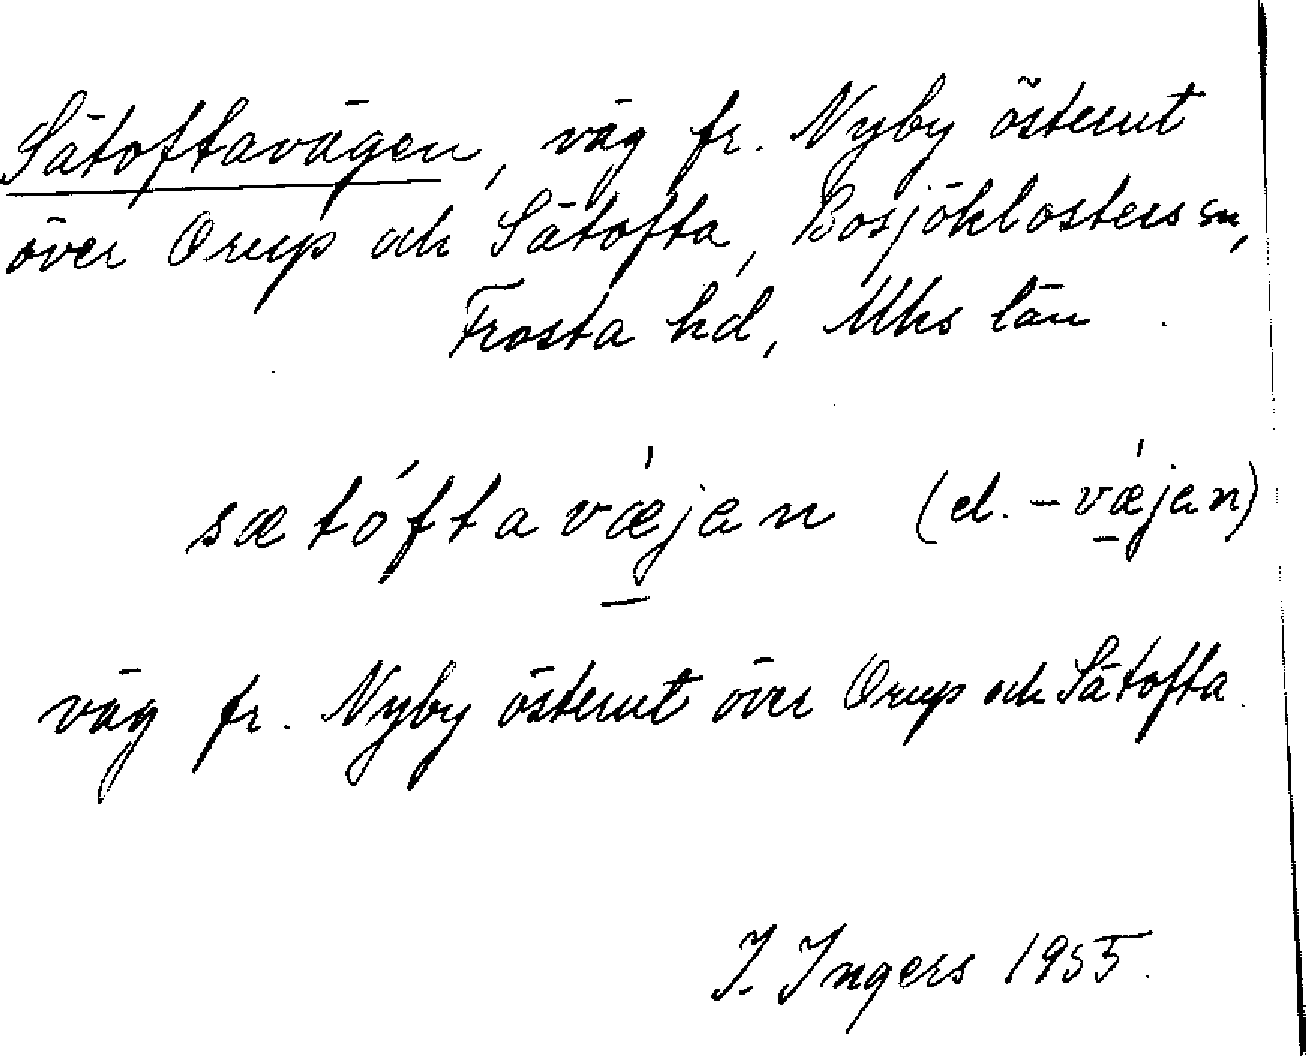 Sätoftavägen, väg fr. Nyby österut
över Orup och Sätofta, Bosjöklosters sn,
Frosta hd, Mhs län
sætóftavǽjan (el. -vǽjan)
väg fr. Nyby österut över Orup och Sätofta.
I. Ingers 1955.